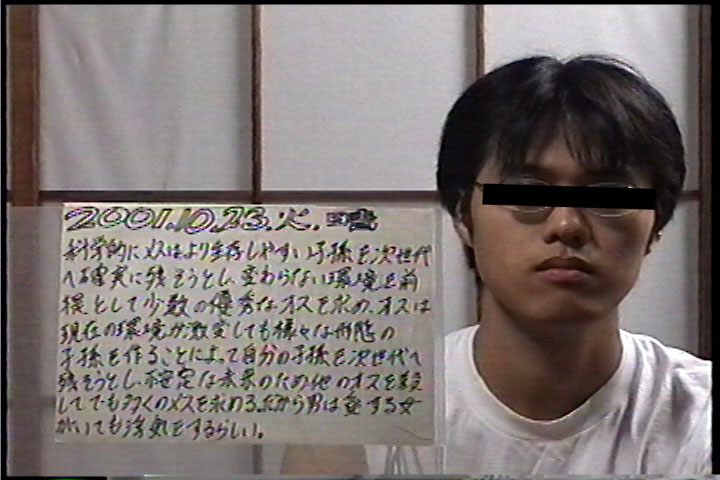 2001.10.23.火.晴
科学的にメスはより生存しやすい子孫を次世代
へ確実に残そうとし、変わらない環境を前
提として少数の優秀なオスを求め、オスは
現在の環境が激変しても様々な形態の
子孫を作ることによって自分の子孫を次世代へ
残そうとし、不確定な未来のため他のオスを殺
してでも多くのメスを求める。だから男は愛する女
がいても浮気をするらしい。